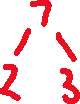 7
2 3